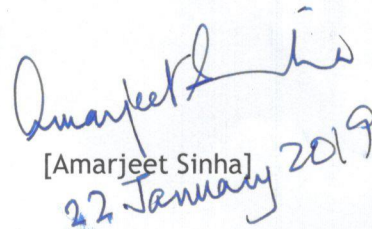 Amarjeet Sinha
[Amarjeet Sinha]
22 January 2019